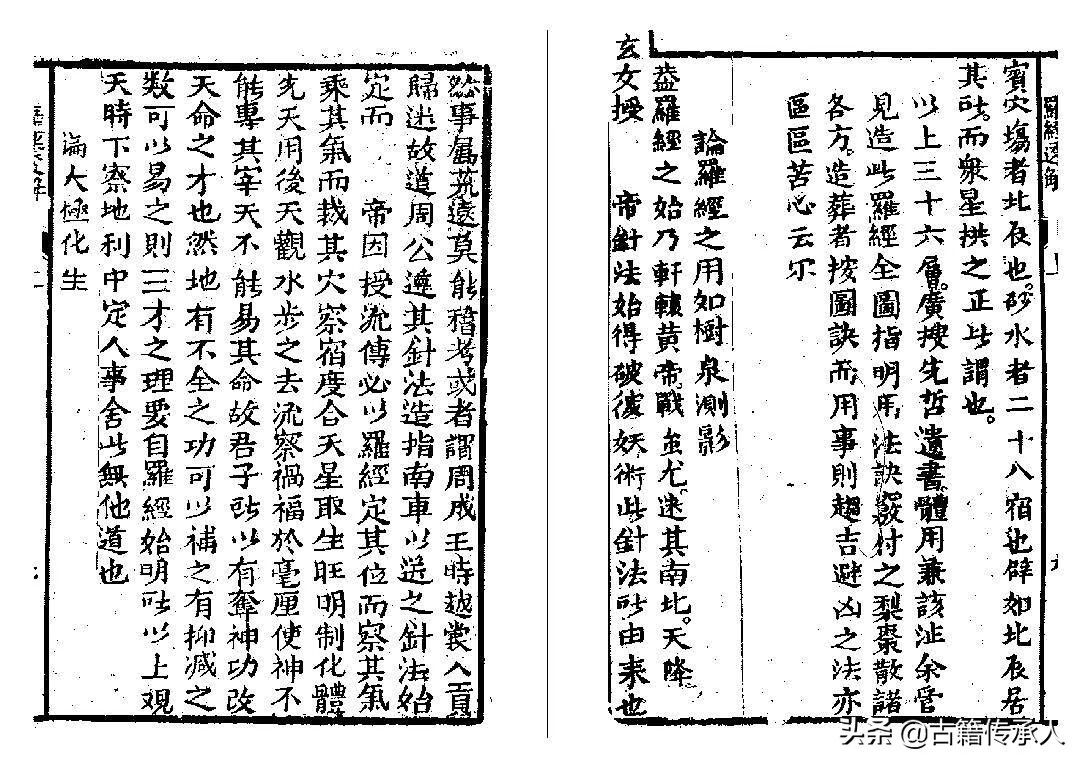 賓穴塲者北辰也。砂水者二十八宿也辟如北辰居
其所。而衆星拱之正此謂也。
以上三十六層。廣搜先哲遺書。體用兼該
見造此羅經全圖指明用法訣付之梨棗散諸
各方。造葬者按圖訣而用事則趨吉避凶之法亦
區區苦心云尓
論羅經之用如樹泉測影
葢羅經之始乃軒轅黄帝戰蚩尤。迷其南北。天降
玄女授 帝針法始得破彼妖術此針法所由来也
然事属荒遠莫能稽考或者謂周成王時越裳人貢
歸迷故道周公遵其針法造指南車以送之針法始
定而 帝因授流傳必以羅經定其位而察其氣
乘其氣而裁其穴察宿度合天星取生旺明制化體
先天用後天觀水步之去流察禍福於毫厘使神不
能專其宰天不能易其命故君子所以有奪神功改
天命之才也然地有不全之功可以補之有抑减之
数可以易之則三才之理要自羅經始明所以上观
天時下察地利中定人事舍此無他道也
論太極化生
头条 @古籍传承人